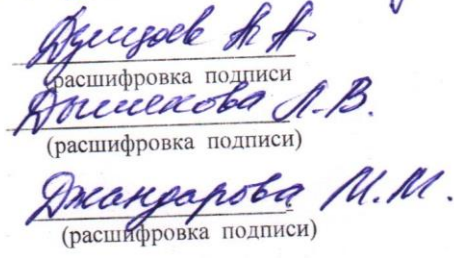 Думцоев А А.
расшифровка подписи
Дышекова Л.В.
(расшифровка подписи)
Джандарова М.М.
(расшифровка подписи)